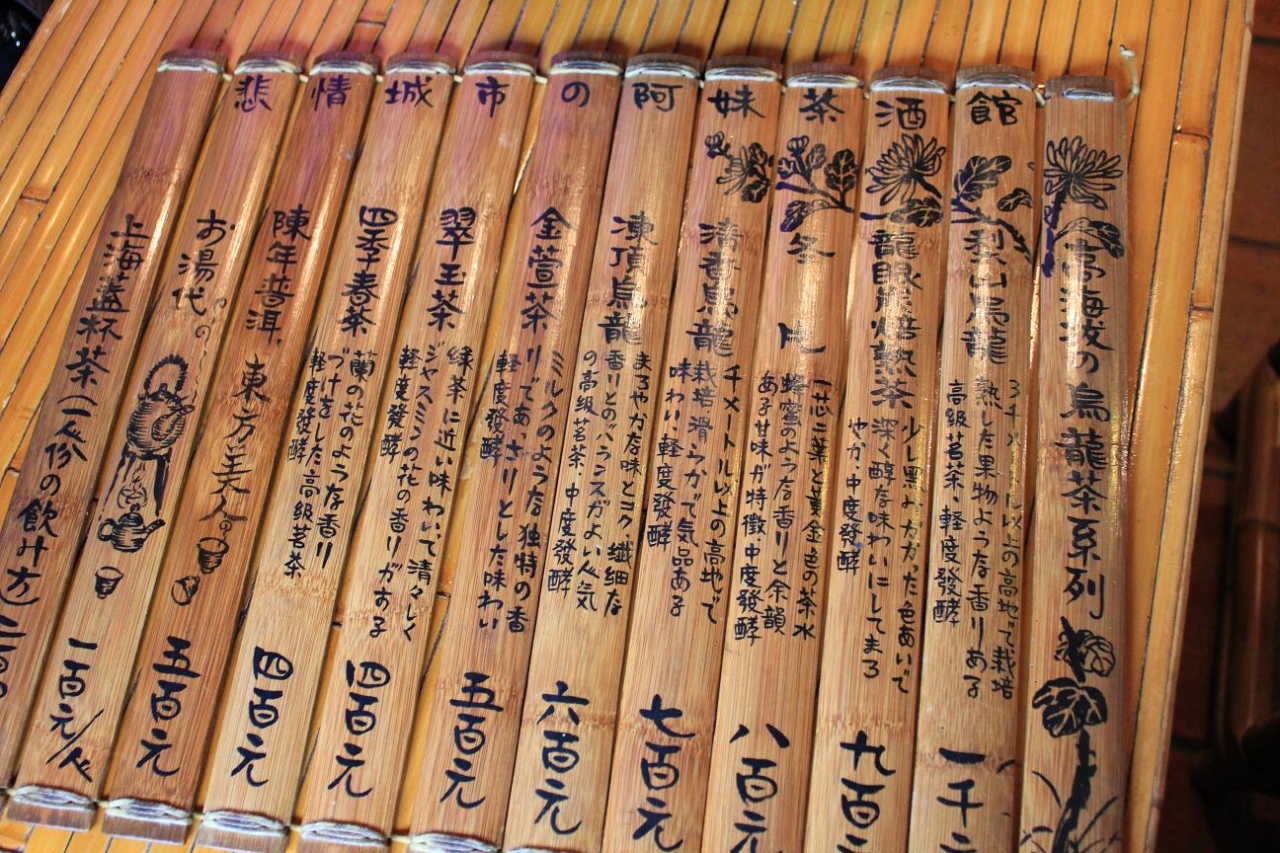 悲情城市の阿妹茶酒館
高海拔の烏龍茶系列
梨山烏龍
3千メートル以上の高地で栽培
熟した果物ような香りある
高級茗茶、軽度發酵
一千元
龍眼炭焙熟茶
少し黒みがかった色あいで
深く醇な味わいにしてまろ
やか、中度發酵
九百元
冬片
一芯二葉と黄金色の茶水
蜂蜜のような香りと余韻
ある甘味が特徴中度發酵
八百元
清香烏龍
千メートル以上の高地で
栽培滑らかで気品ある
味わい、軽度發酵
七百元
凍頂烏龍
まろやかな味とコク 繊細な
香りとのバランスがよい人気
の高級茗茶、中度發酵
六百元
金萱茶
ミルクのような独特の香
りであっさりとした味わい
軽度發酵
五百元
翠玉茶
緑茶に近い味わいで清々しく
ジャスミンの花の香りがする
軽度發酵
四百元
四季春茶
蘭の花のような香り
づけをした高級茗茶
軽度發酵
四百元
陳年普洱、東方美人
五百元
お湯代
一百元/人
上海蓋杯茶(一人份の飲み方)